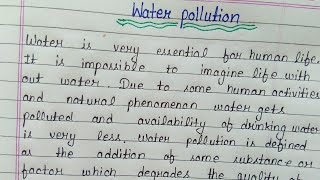 Water pollution
Water is very essential for human life.
It is impossible to imagine life with
out water. Due to some human activities
and natural phenomenon water gets
polluted and availability of drinking water
is very less. Water pollution is defined
as the addition of some substance or
factor which degrades the quality of